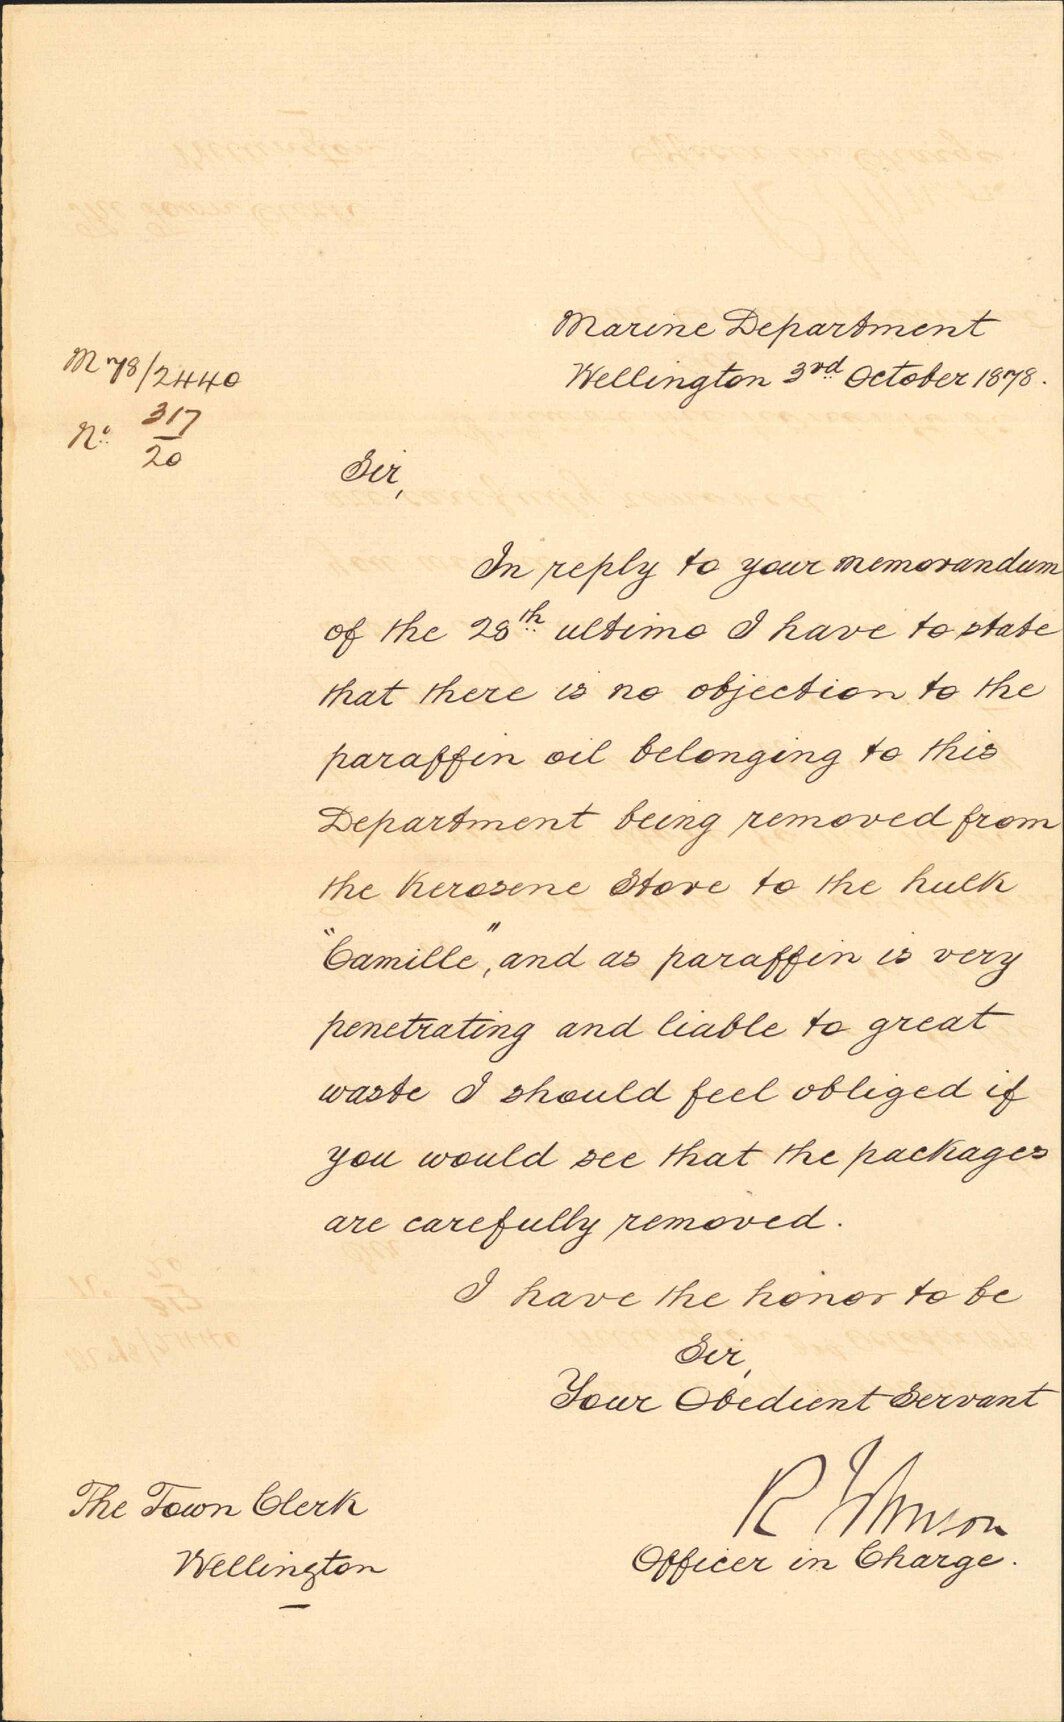 Marine Department
Wellington 3rd October 1878.
M 78/2440
No. 317/20
Sir,
In reply to your memorandum
of the 28th ultimo I have to state
that there is no objection to the
paraffin oil belonging to this
Department being removed from
the Kerosene Store to the hulk
"Camille", and as paraffin is very
penetrating and liable to great
waste I should feel obliged if
you would see that the packages
are carefully removed.
I have the honor to be
Sir,
Your Obedient Servant
R Johnson
Officer in Charge.
The Town Clerk
Wellington